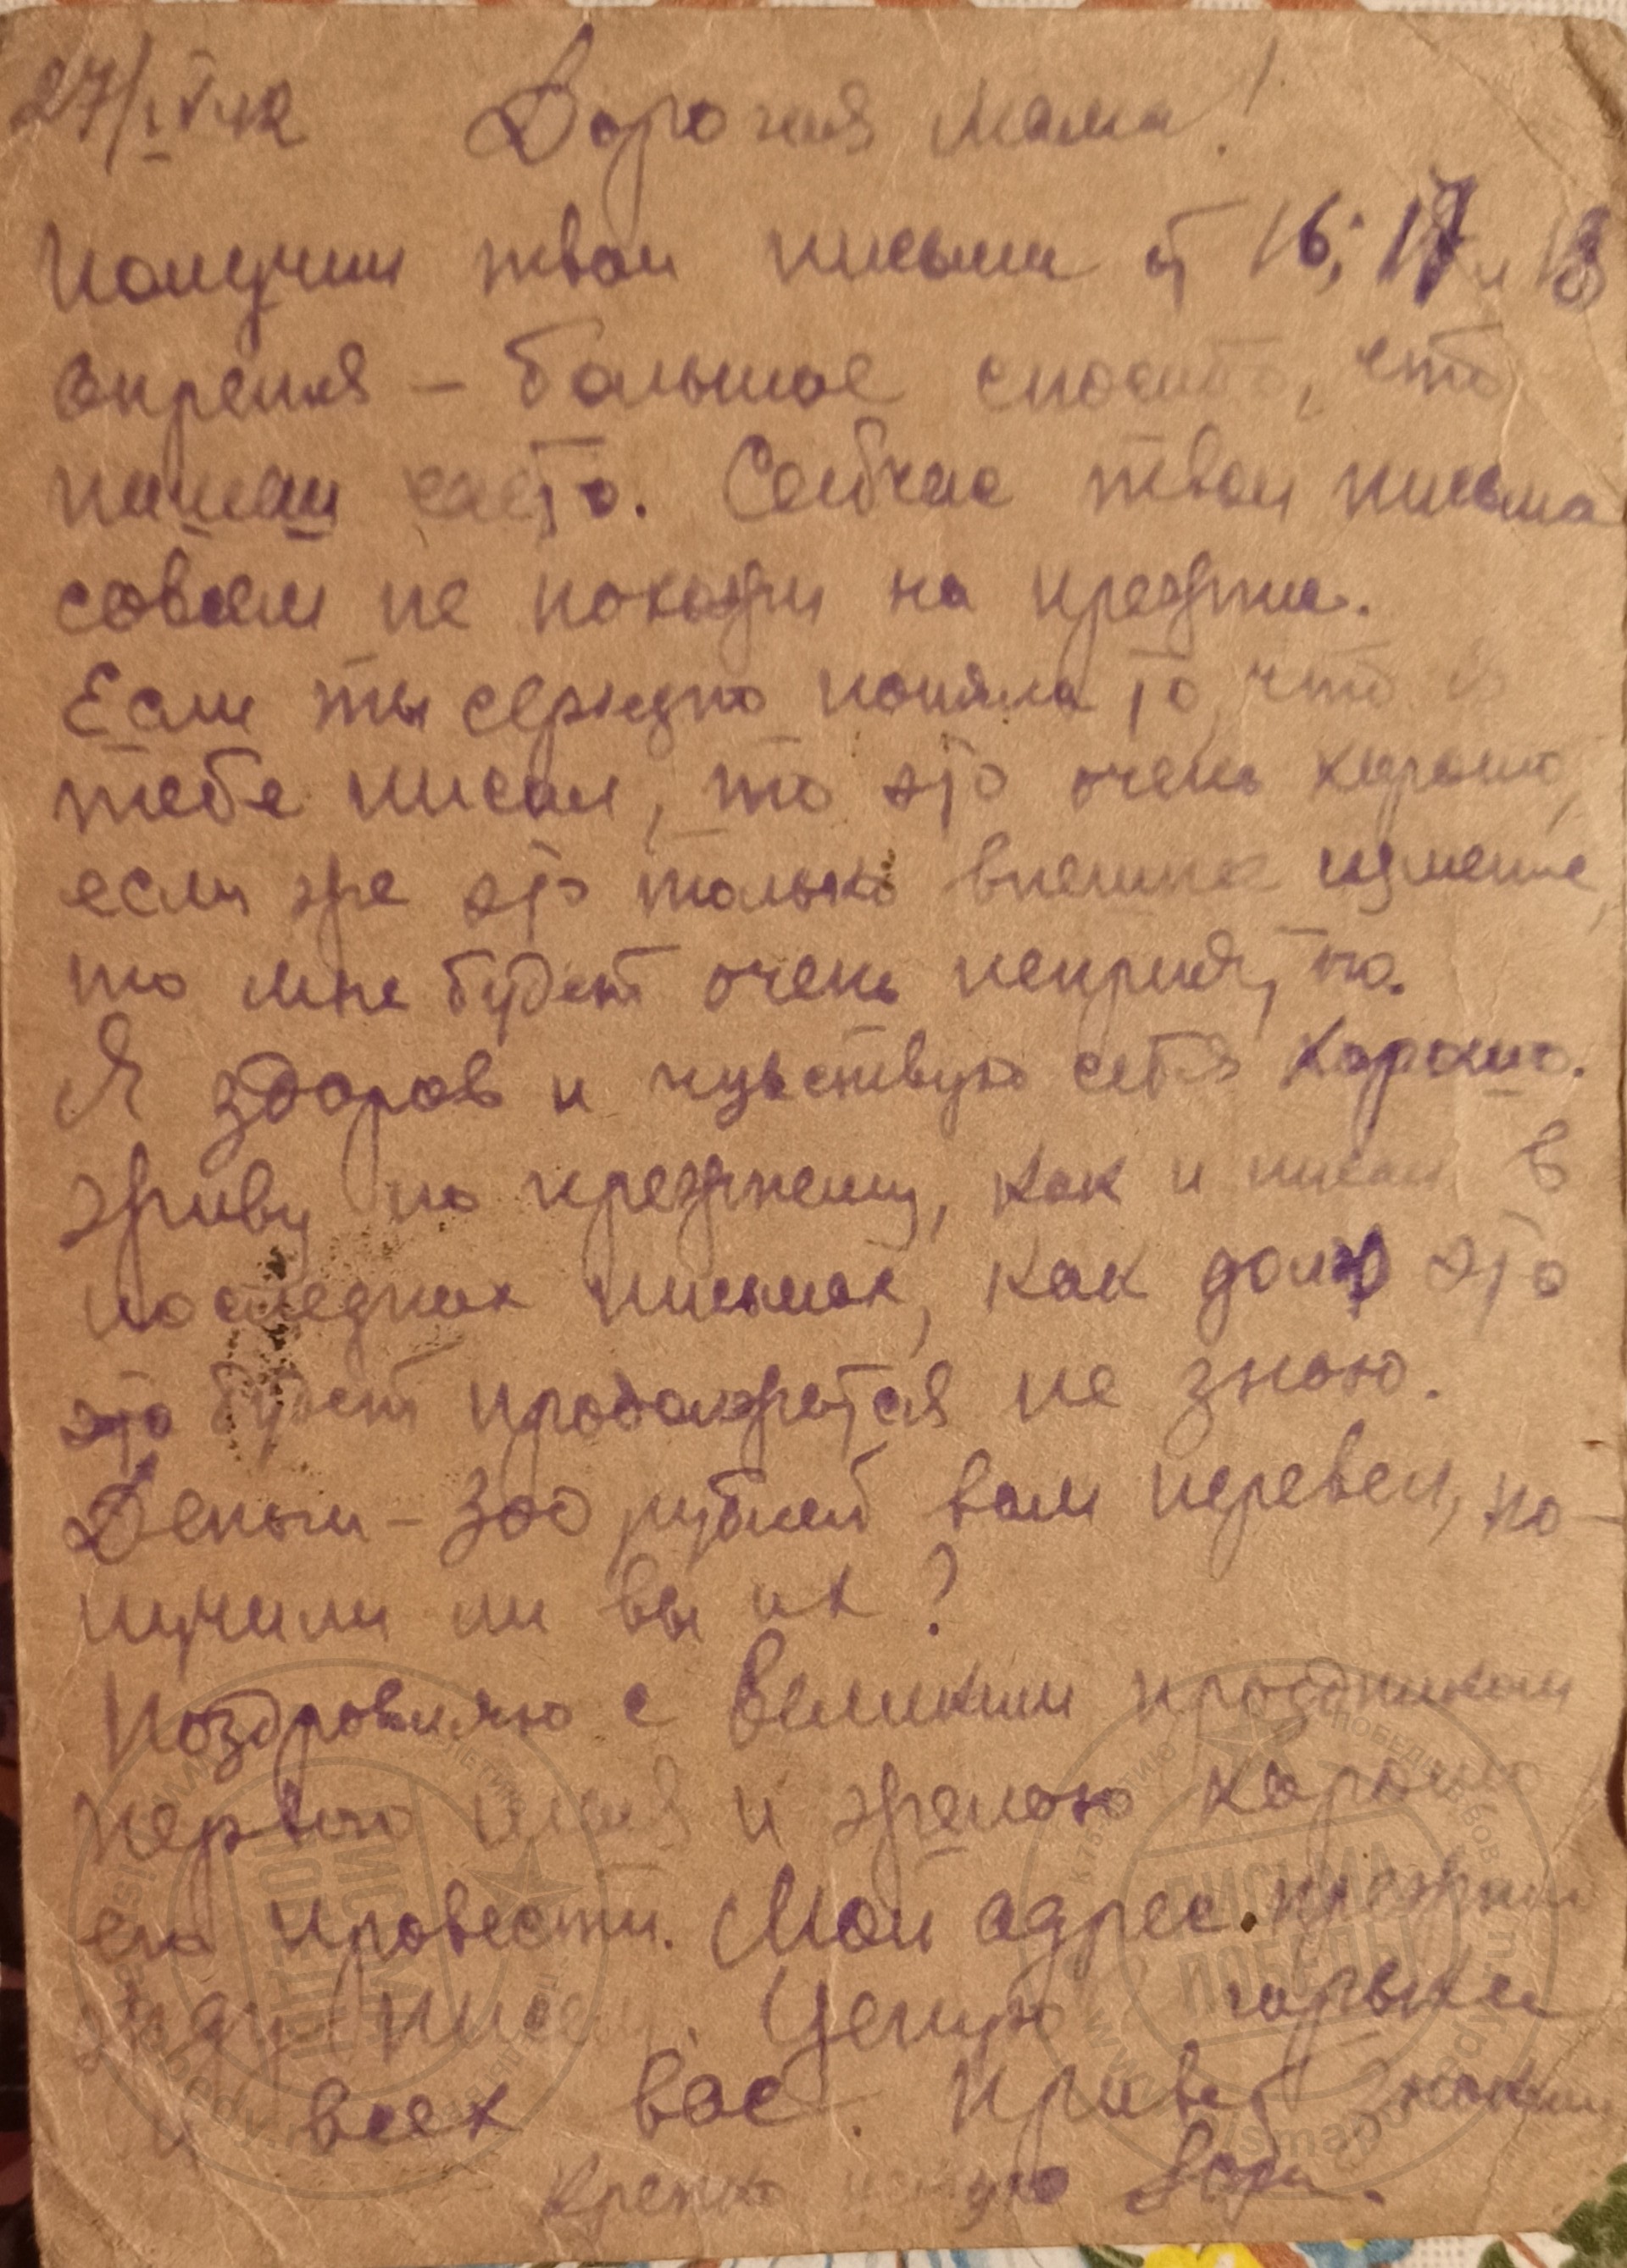 27/IV 42 Дорогая мама!
Получил твои письма от 16, 17 и 18
апреля – большое спасибо, что
пишеш часто. Сейчас твои письма
совсем не похожи на прежние.
Если ты серьезно поняла то, что я
тебе писал, то это очень хорошо,
если же это только внешне
то мне будет очень неприятно.
Я здоров и чувствую себя хорошо.
Живу по прежнему, как и писал в
последних письмах, как долго это
это будет продолжатся не знаю.
Деньги – 300 рублей вам перевел, по-
лучили ли вы их?
Поздравляю с великим праздником
первого мая и желаю хорошо
его провести. Мой адрес прежний
жду писем. Целую горячо
и всех вас. Привет знакомым
Крепко целую Боря.
ПИСЬМА ПОБЕДЫ
ПИСЬМА ПОБЕДЫ